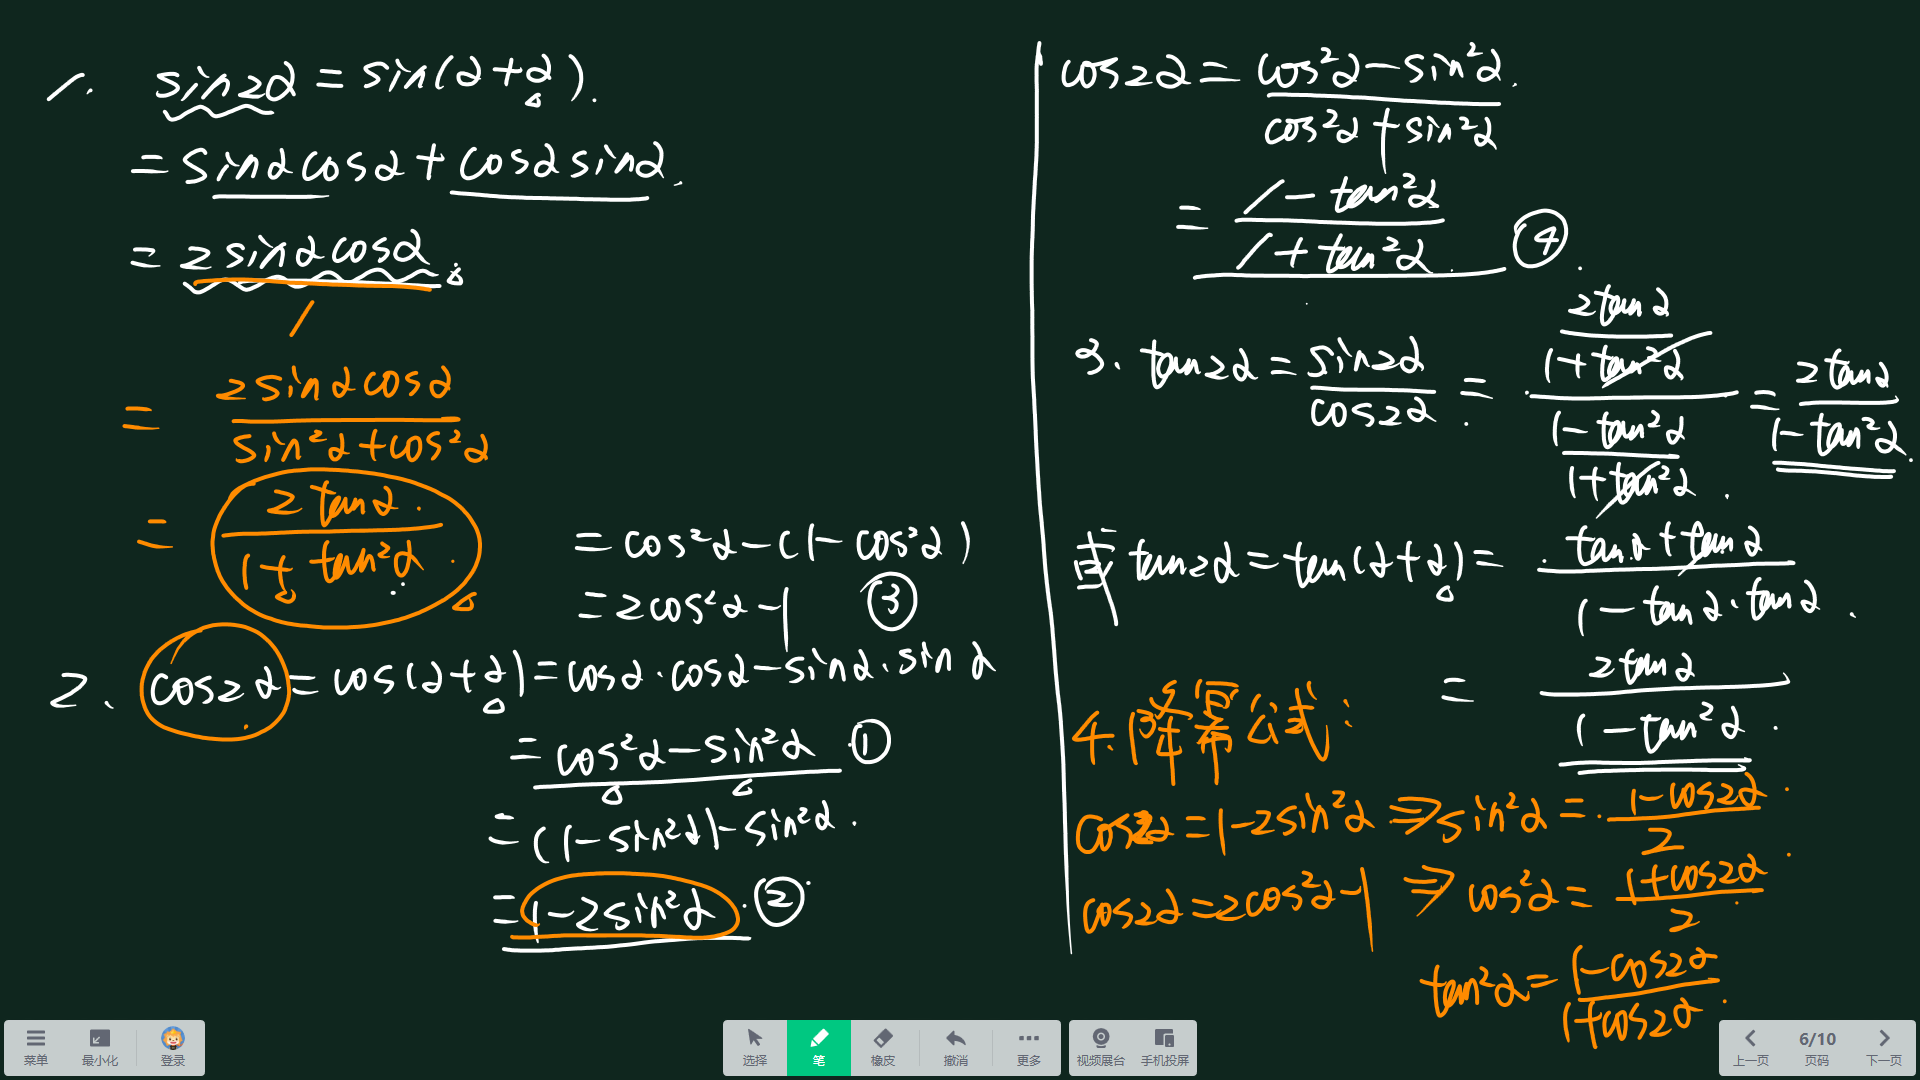 1. sin2α = sin(α+α).
= sinαcosα + cosαsinα.
= 2sinαcosα.
1
= 2sinαcosα / sin²α+cos²α
= 2tanα / 1+tan²α
2、cos2α = cos(α+α) = cosα·cosα-sinα·sinα
= cos²α-sin²α ①
= (1-sin²α)-sin²α.
= 1-2sin²α. ②
= cos²α-(1-cos²α)
= 2cos²α-1 ③
cos2α = cos²α-sin²α / cos²α+sin²α
= 1-tan²α / 1+tan²α ④
3. tan2α = sin2α / cos2α = 2tanα / 1+tan²α / 1-tan²α / 1+tan²α = 2tanα / 1-tan²α.
或 tan2α = tan(α+α) = tanα+tanα / 1-tanα·tanα.
= 2tanα / 1-tan²α.
4.降幂公式:
cos2α = 1-2sin²α ⇒ sin²α = 1-cos2α / 2
cos2α = 2cos²α-1 ⇒ cos²α = 1+cos2α / 2
tan²α = 1-cos2α / 1+cos2α.
菜单 最小化 登录
选择 笔 橡皮 撤消 更多
视频展台 手机投屏
上一页 6/10 页码 下一页